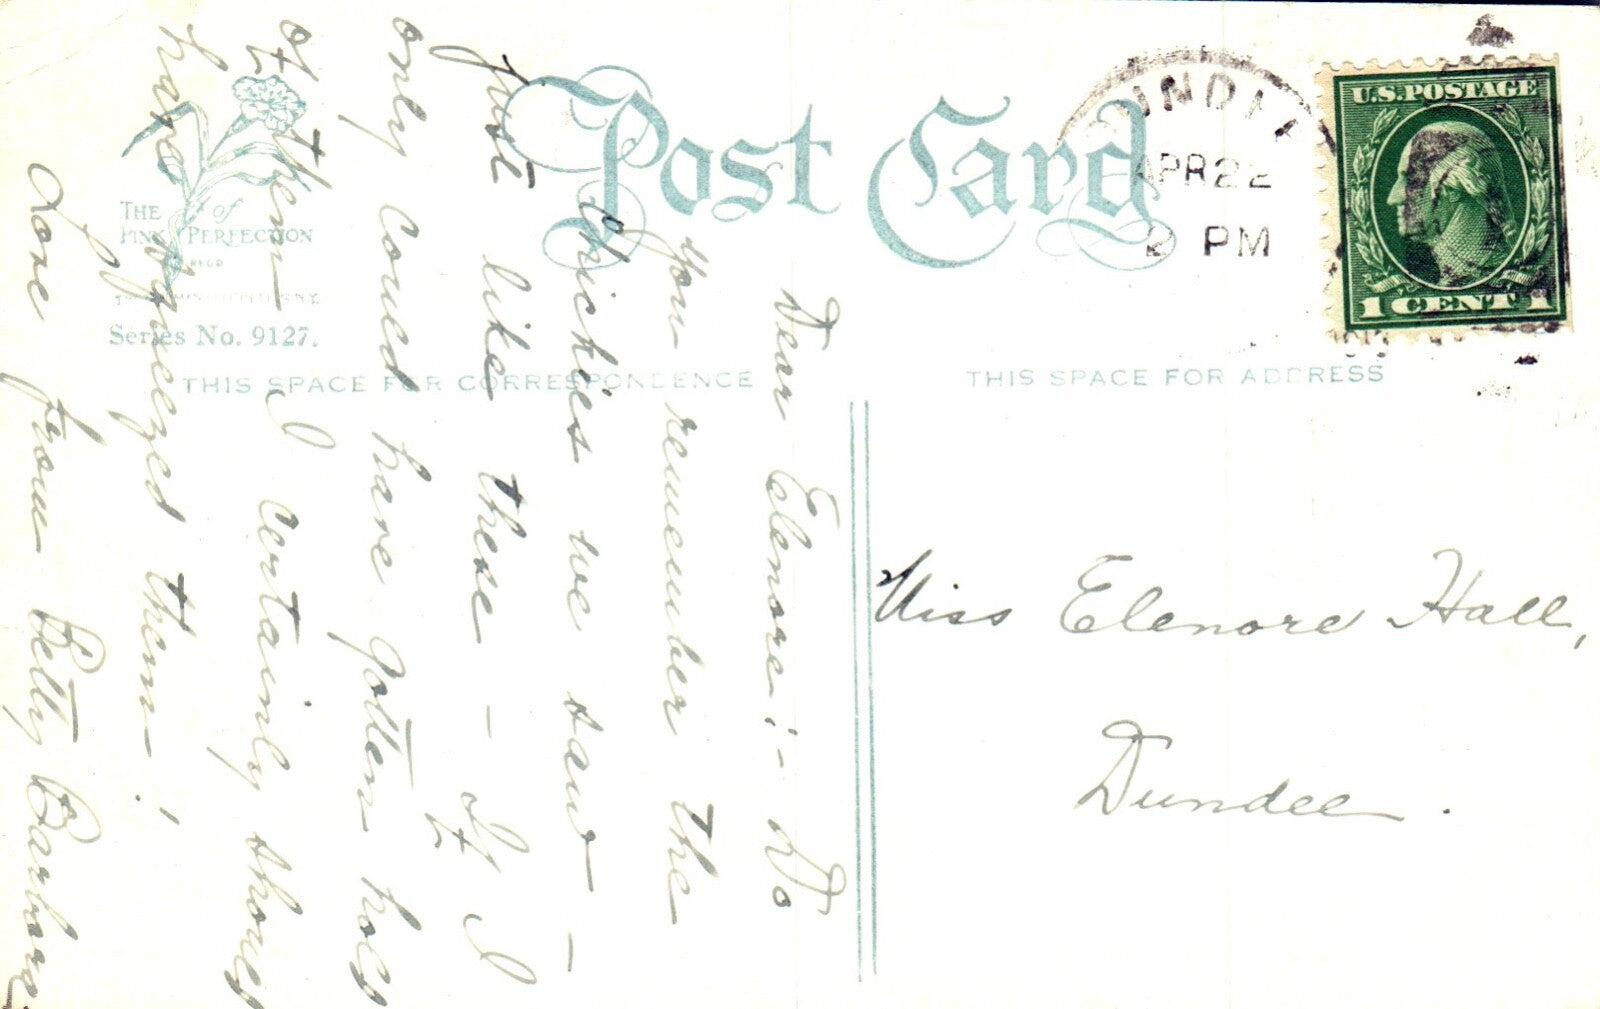 Post Card
THE of
PINK PERFECTION
REGD
Series No. 9127.
THIS SPACE FOR CORRESPONDENCE
THIS SPACE FOR ADDRESS
UNDEE
APR 22
2 PM
U.S. POSTAGE
1 CENT 1
Dear Elenore:- Do
you remember the
Chickies we saw -
just like these - If I
only could have gotten hols
of them I certainly shoues
have squeezed them!
Love from Betty Barbara
Miss Elenore Hall,
Dundee.